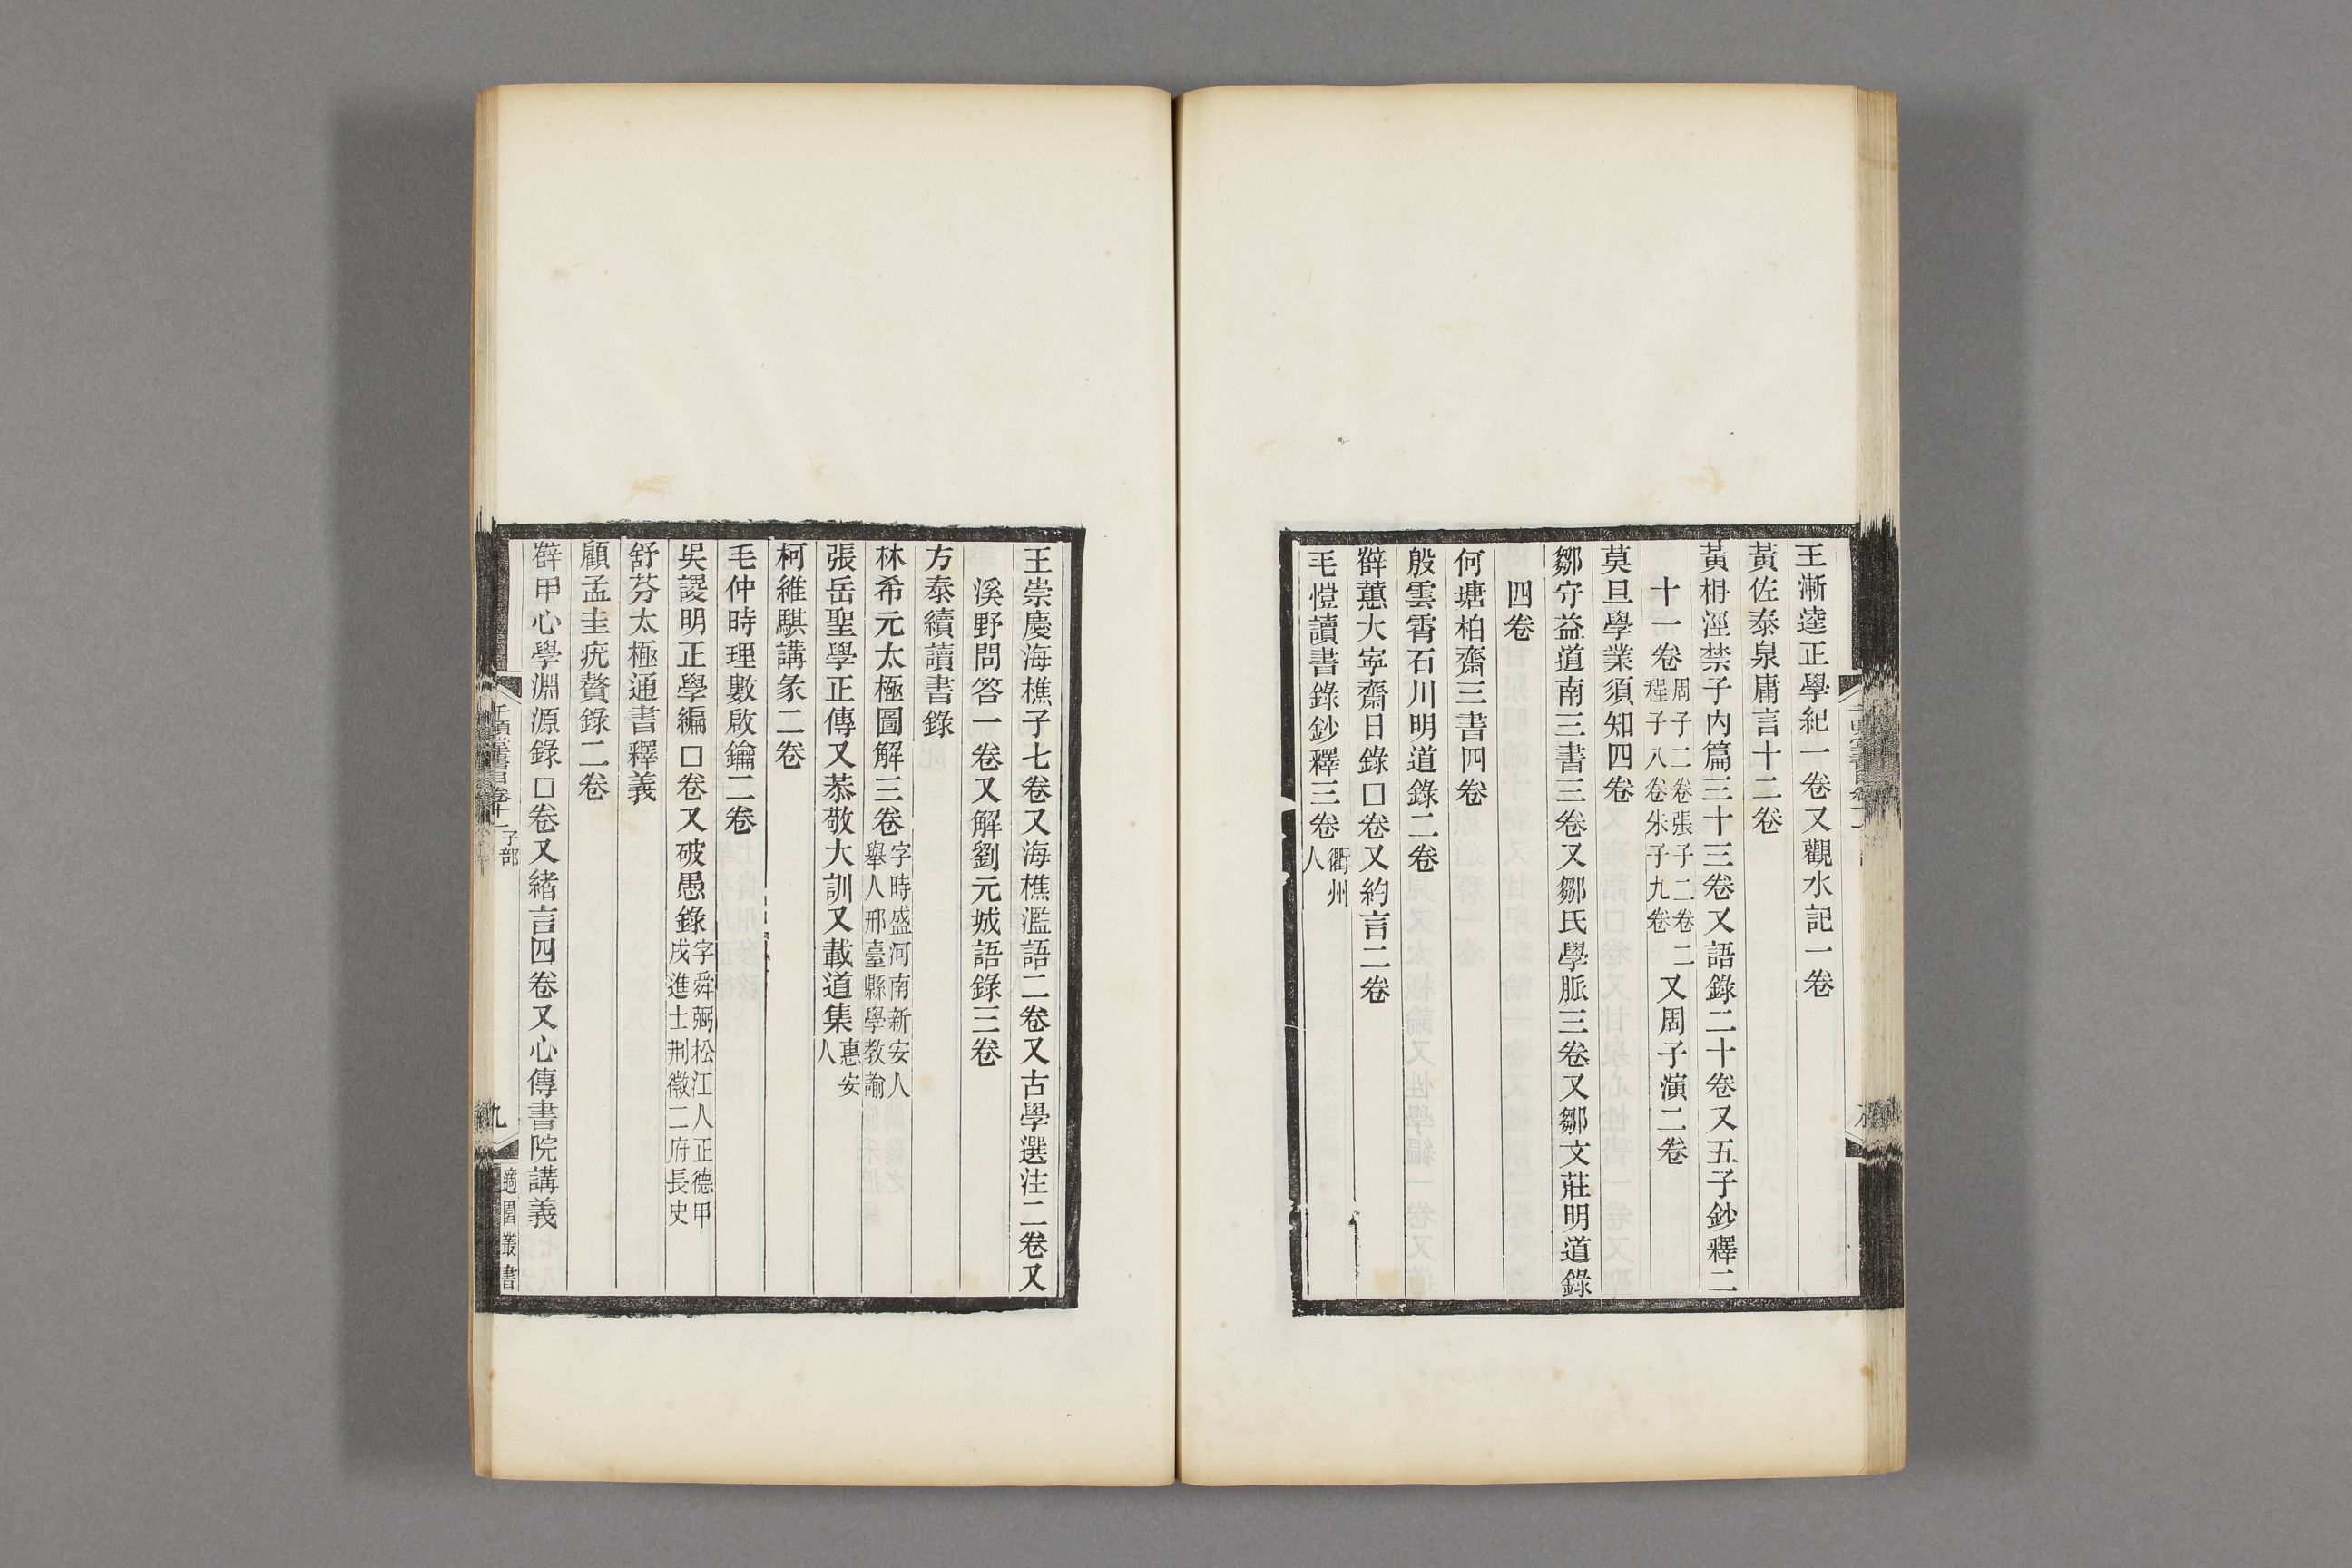 王漸逵正學紀一卷又觀水記一卷
黃佐泰泉庸言十二卷
黃栴涇禁子內篇三十三卷又語錄二十卷又五子鈔釋二
十一卷周子二卷張子二卷二程子八卷朱子九卷又周子演二卷
莫旦學業須知四卷
鄒守益道南三書三卷又鄒氏學脈三卷又鄒文莊明道錄
四卷
何瑭柏齋三書四卷
殷雲霄石川明道錄二卷
薛蕙大寧齋日錄口卷又約言二卷
毛愷讀書錄鈔釋三卷衢州人
王崇慶海樵子七卷又海樵濫語二卷又古學選注二卷又
溪野問答一卷又解劉元城語錄三卷
方泰續讀書錄
林希元太極圖解三卷字時盛河南新安人舉人邢臺縣學教諭
張岳聖學正傳又恭敬大訓又載道集惠安人
柯維騏講彖二卷
毛仲時理數啟鑰二卷
吳䜱明正學編口卷又破愚錄字舜弼松江人正德甲戌進士荆徽二府長史
舒芬太極通書釋義
顧孟圭疣贅錄二卷
薛甲心學淵源錄口卷又緒言四卷又心傳書院講義
千頃堂書目卷十一 子部
九
適園叢書